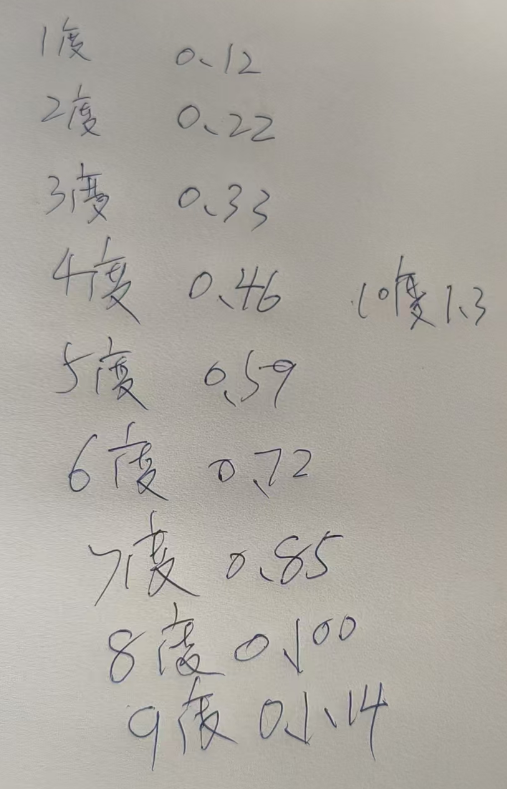 1度 0.12
2度 0.22
3度 0.33
4度 0.46
10度 1.3
5度 0.59
6度 0.72
7度 0.85
8度 0.100
9度 0.1.14